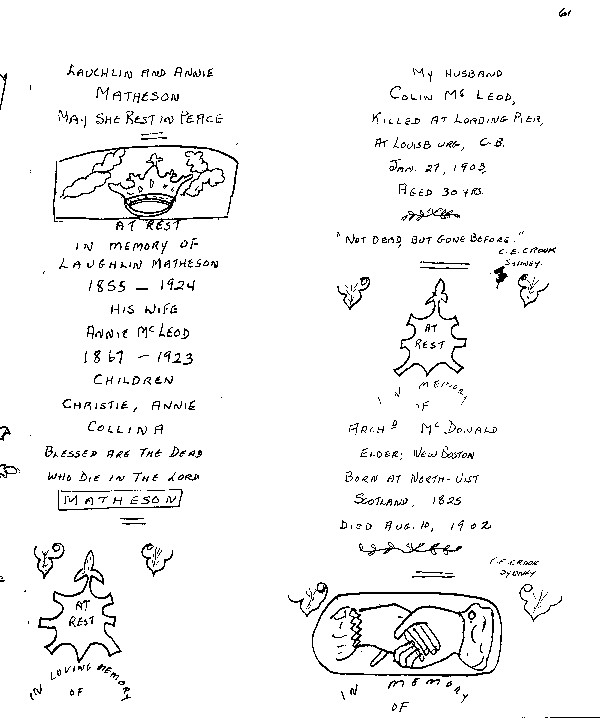 61
LAUGHLIN AND ANNIE
MATHESON
MAY SHE REST IN PEACE
AT REST
IN MEMORY OF
LAUGHLIN MATHESON
1855 — 1924
HIS WIFE
ANNIE McLEOD
1867 — 1923
CHILDREN
CHRISTIE, ANNIE
COLLINA
BLESSED ARE THE DEAD
WHO DIE IN THE LORD
MATHESON
AT
REST
IN LOVING MEMORY
OF
MY HUSBAND
COLIN Mc LEOD,
KILLED AT LOADING PIER,
AT LOUISBURG, C.B.
JAN. 27, 1903,
AGED 30 YRS.
"NOT DEAD, BUT GONE BEFORE."
C.E. CROOK
SYDNEY.
AT
REST
IN MEMORY
OF
ARCHD McDONALD
ELDER; NEW BOSTON
BORN AT NORTH-UIST
SCOTLAND, 1825
DIED AUG. 10, 1902
CROOK
SYDNEY
IN MEMORY
OF